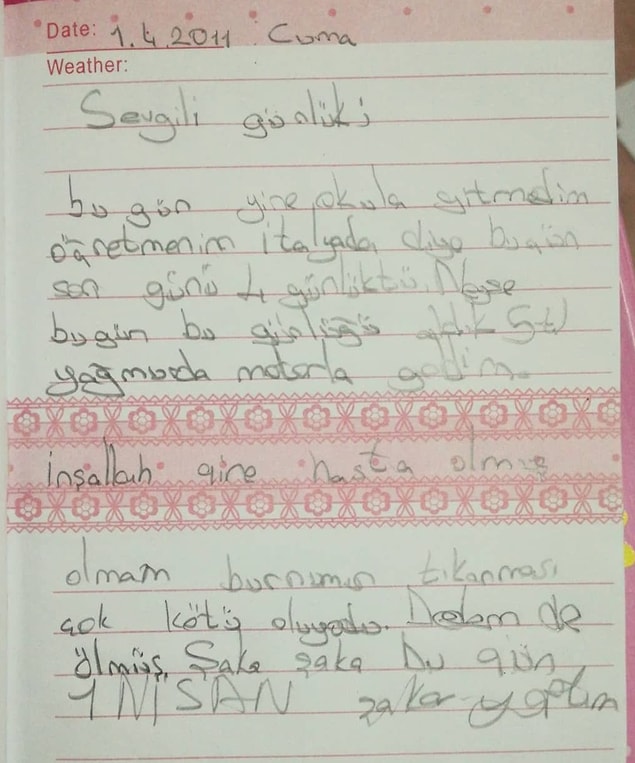 Date: 1.4.2011 Cuma
Weather:
Sevgili günlük;
bu gün yine okula gitmedim
öğretmenim italyada diye bugün
son günü 4 günlüktü. Neyse
bugün bu günlüğü aldık 5 tl
yağmurda motorla geldim.
inşallah yine hasta olmuş
olmam burnumun tıkanması
çok kötü oluyodu. Dedem de
ölmüş. Şaka şaka bu gün
1 NİSAN şakası yaptım